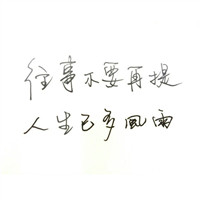 往事不要再提
人生已多風雨